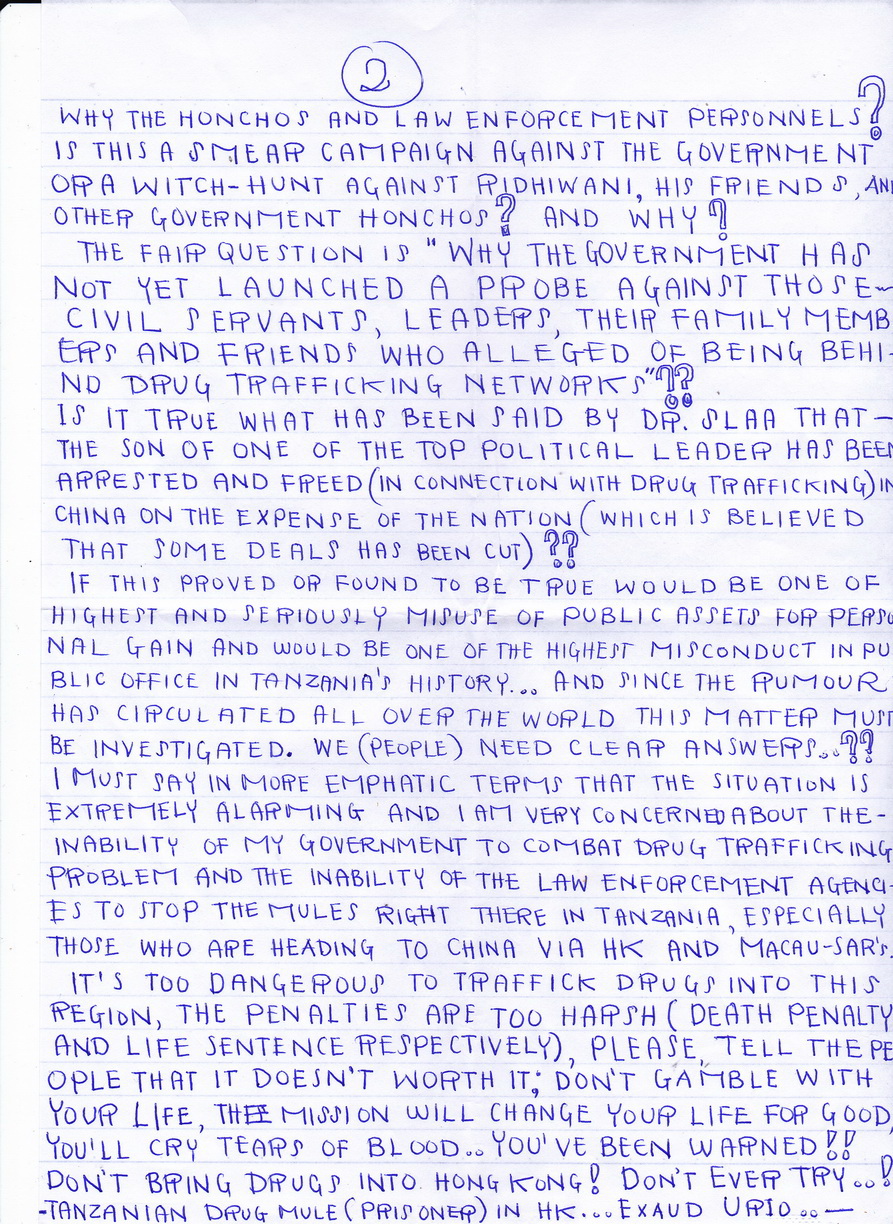 2
WHY THE HONCHOS AND LAW ENFORCEMENT PERSONNELS?
IS THIS A SMEAR CAMPAIGN AGAINST THE GOVERNMENT
OR A WITCH-HUNT AGAINST RIDHIWANI, HIS FRIENDS, AN
OTHER GOVERNMENT HONCHOS? AND WHY?
THE FAIR QUESTION IS "WHY THE GOVERNMENT HAS
NOT YET LAUNCHED A PROBE AGAINST THOSE-
CIVIL SERVANTS, LEADERS, THEIR FAMILY MEMB
ERS AND FRIENDS WHO ALLEGED OF BEING BEHI-
ND DRUG TRAFFICKING NETWORKS"??
IS IT TRUE WHAT HAS BEEN SAID BY DR. SLAA THAT-
THE SON OF ONE OF THE TOP POLITICAL LEADER HAS BEEN
ARRESTED AND FREED (IN CONNECTION WITH DRUG TRAFFICKING) IN
CHINA ON THE EXPENSE OF THE NATION (WHICH IS BELIEVED
THAT SOME DEALS HAS BEEN CUT)??
IF THIS PROVED OR FOUND TO BE TRUE WOULD BE ONE OF
HIGHEST AND SERIOUSLY MISUSE OF PUBLIC ASSETS FOR PERSO
NAL GAIN AND WOULD BE ONE OF THE HIGHEST MISCONDUCT IN PU
BLIC OFFICE IN TANZANIA'S HISTORY... AND SINCE THE RUMOUR
HAS CIRCULATED ALL OVER THE WORLD THIS MATTER MUST
BE INVESTIGATED. WE (PEOPLE) NEED CLEAR ANSWERS..??
I MUST SAY IN MORE EMPHATIC TERMS THAT THE SITUATION IS
EXTREMELY ALARMING AND I AM VERY CONCERNED ABOUT THE-
INABILITY OF MY GOVERNMENT TO COMBAT DRUG TRAFFICKING
PROBLEM AND THE INABILITY OF THE LAW ENFORCEMENT AGENCI-
ES TO STOP THE MULES RIGHT THERE IN TANZANIA, ESPECIALLY
THOSE WHO ARE HEADING TO CHINA VIA HK AND MACAU-SAR'S.
IT'S TOO DANGEROUS TO TRAFFICK DRUGS INTO THIS
REGION, THE PENALTIES ARE TOO HARSH (DEATH PENALTY
AND LIFE SENTENCE RESPECTIVELY), PLEASE, TELL THE PE
OPLE THAT IT DOESN'T WORTH IT; DON'T GAMBLE WITH
YOUR LIFE, THE MISSION WILL CHANGE YOUR LIFE FOR GOOD,
YOU'LL CRY TEARS OF BLOOD.. YOU'VE BEEN WARNED!!
DON'T BRING DRUGS INTO HONG KONG! DON'T EVER TRY..!
-TANZANIAN DRUG MULE (PRISONER) IN HK... EXAUD URIO..-